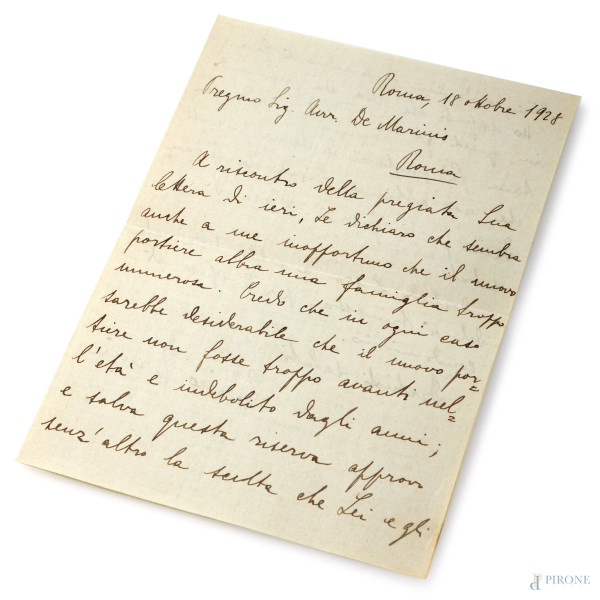 Roma, 18 ottobre 1928
Pregmo Sig. Avv. De Marinis
Roma
A riscontro della pregiata Sua
lettera di ieri, Le dichiaro che sembra
anche a me inopportuno che il nuovo
portiere abbia una famiglia troppo
numerosa. Credo che in ogni caso
sarebbe desiderabile che il nuovo por=
tiere non fosse troppo avanti nel=
l'età e indebolito dagli anni;
e salva questa riserva approvo
senz'altro la scelta che Lei e gli
PIRONE